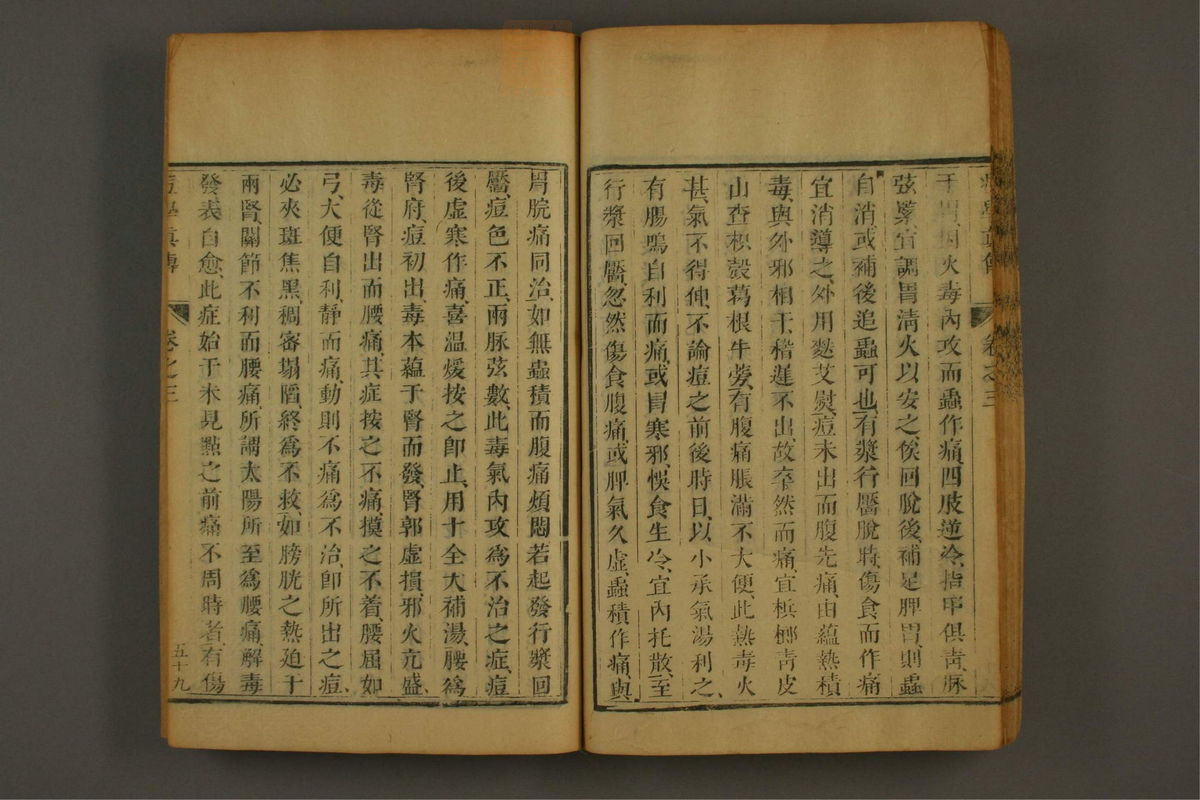 痘學眞傳 卷之三
于胃因火毒內攻而蟲作痛四肢逆冷指甲俱靑脉
弦緊宜調胃淸火以安之候回脫後補足脾胃則蟲
自消或補後追蟲可也有漿行靨脫時傷食而作痛
宜消導之外用麩艾熨痘未出而腹先痛由蘊熱積
毒與外邪相干稽遲不出故卒然而痛宜檳榔靑皮
山查枳殼葛根牛蒡有腹痛脹滿不大便此熱毒火
甚氣不得伸不論痘之前後時日以小承氣湯利之
有腸鳴自利而痛或冒寒邪悞食生冷宜內托散至
行漿回靨忽然傷食腹痛或脾氣久虛蟲積作痛與
胃脘痛同治如無蟲積而腹痛煩悶若起發行漿回
靨痘色不正兩脉弦數此毒氣內攻為不治之症痘
後虛寒作痛喜溫煖按之卽止用十全大補湯腰為
腎府痘初出毒本蘊于腎而發腎郭虛損邪火亢盛
毒從腎出而腰痛其症按之不痛摸之不着腰屈如
弓大便自利靜而痛動則不痛為不治卽所出之痘
必夾斑焦黑稠密塌陷終為不救如膀胱之熱廹于
兩腎關節不利而腰痛所謂太陽所至為腰痛解毒
發表自愈此症始于未見點之前痛不周時者有傷
痘學眞傳 卷之三 五十九